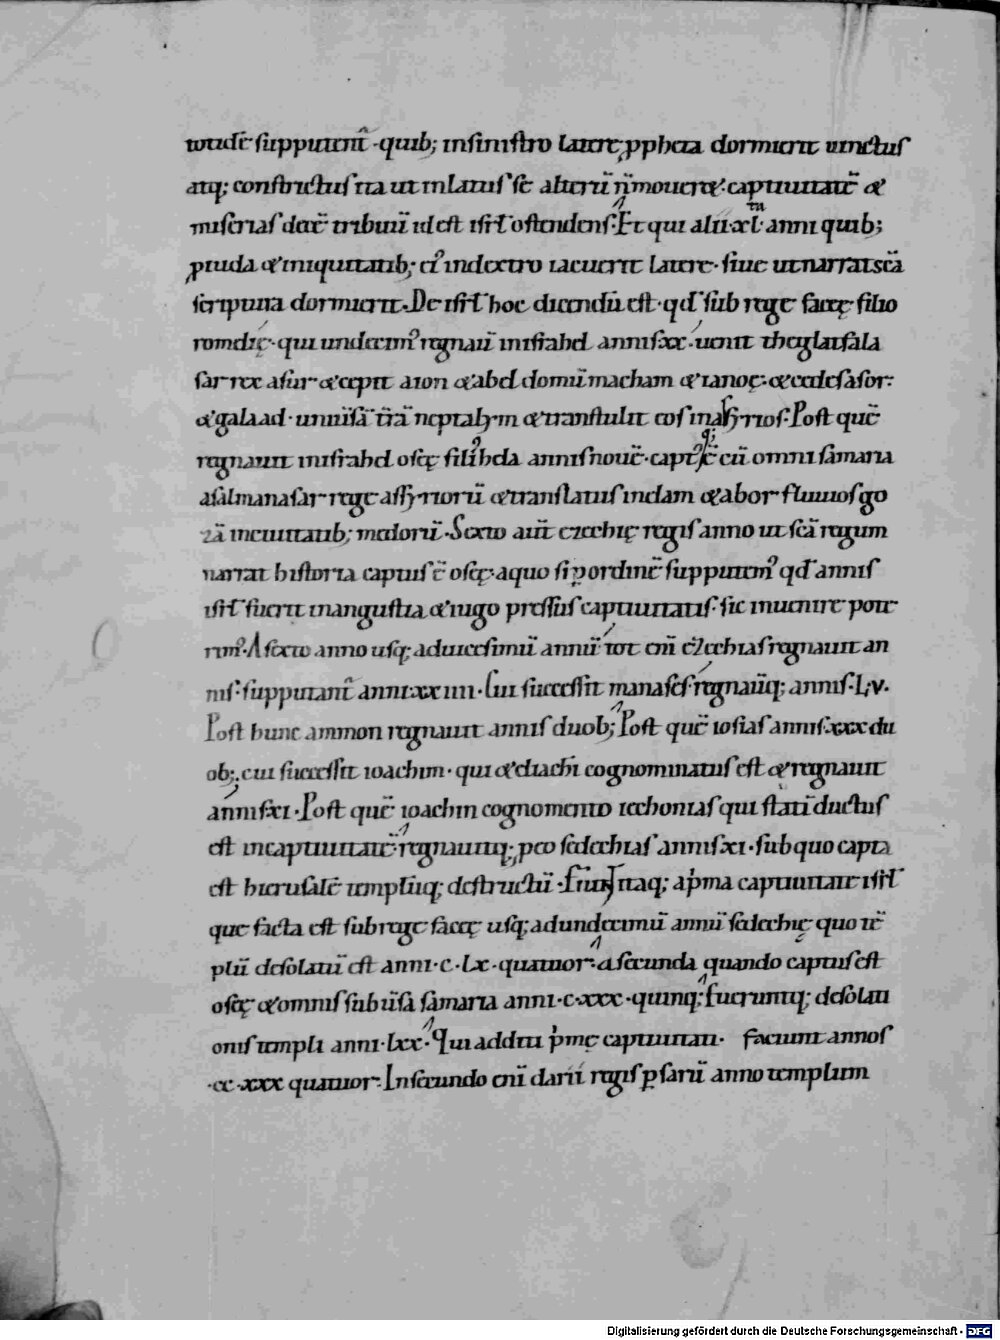 totidē supputent̄ · quib; insinistro latere ꝓpheta dormierit uinctus
atq; constrictus ita ut inlatus se alterū n̄moueret&· captiuitatē &
miserias decē tribuū id est isrl̄ ostendens· Et qui alii·xl· anni quib;
ꝓ iuda & iniquitatib; ei' indextro iacuerit latere· siue utnarrat scā
scriptura dormierit· De isrl̄ hoc dicendū est· qd̄ sub rege facee filio
romelię· qui undecim' regnau̅ inisrahel annis·xx· uenit theglatfala
sar rex asur· & cepit aion & abel domū macham & ianoę· & cedesasor·
& galaad· uniuīsā t̄rā neptalym & transtulit eos inassyrios· Post quē
regnauit inisrahel oseę fili' hela annis nouē· captꝰq; ē cū omni samaria
asalmanasar rege assyriorū & translatus inelam & abor fluuios go
zā inciuitatib; medorū· Sexto aut̄ ezechię regis anno ut scā regum
narrat historia captus ē oseę· aquo si ꝑordinē supputem' qd̄ annis
isrl̄ fuerit inangustia & iugo pressus captiuitatis· sic inuenire pote
rim'· A sexto anno usq; aduicesimū annū· tot eni̅ ezechias regnauit an
nis· supputant̄ anni·xxiiii· Cui successit manases· regnau̅q; annis·Lv·
Post hunc ammon regnauit annis duob; Post quē iosias annis·xxxdu
ob; cui successit ioachim· qui & eliachi̅ cognominatus est & regnauit
annis·xi· Post quē ioachin cognomento iechonias qui stati̅ ductus
est incaptiuitatē· regnauitq; ꝑ eo sedechias annis·xi· sub quo capta
est hierusalē templūq; destructū· Fiunt itaq; aprima captiuitate isrl̄
que facta est subrege facee usq; adundecimū annū sedechię quo tē
plū desolatū est anni·c·Lx·quatuor· asecunda quando captus est
oseę & omnis sub usa samaria anni·c·xxx·quinq; fueruntq; desolati
onis templi anni·lxx· Qui additi primę captiuitati· faciunt annos
·cc·xxx quatuor· Insecundo eni̅ darii regis ꝑsarū anno templum
Digitalisierung gefördert durch die Deutsche Forschungsgemeinschaft - DFG